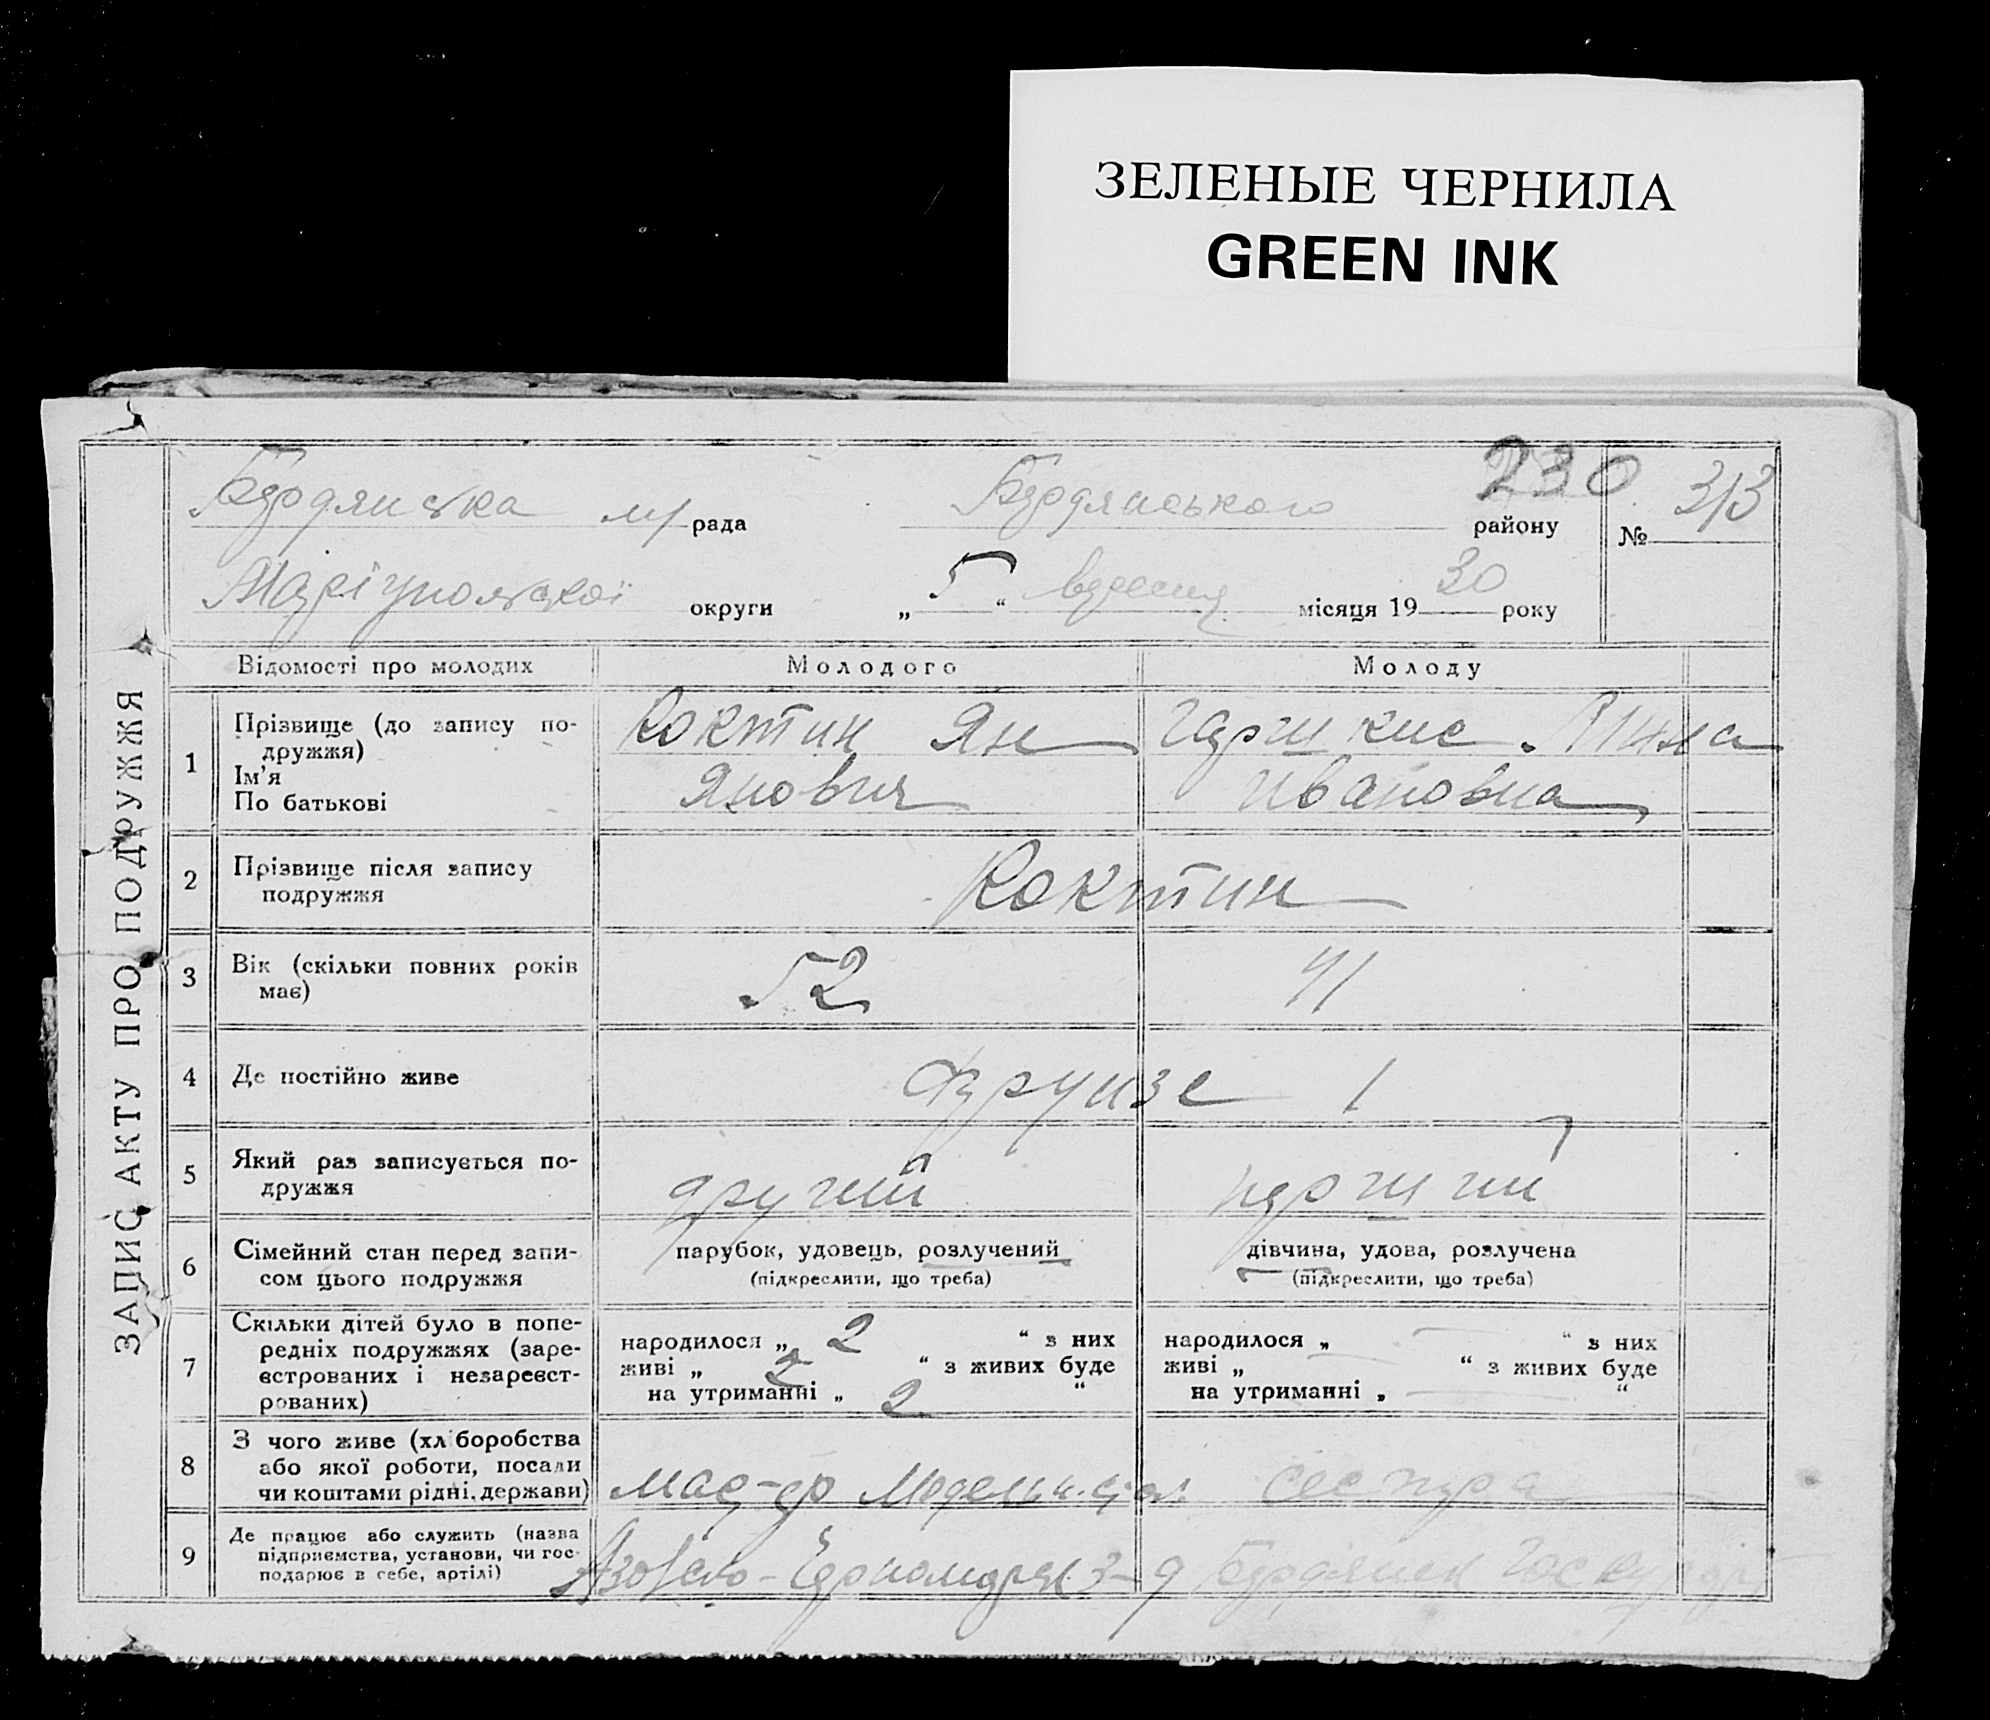 ЗЕЛЕНЫЕ ЧЕРНИЛА
GREEN INK
230
Бердянська м/рада Бердянського району № 313
Маріупольської округи „ 5 “ вересня місяця 19 30 року
ЗАПИС АКТУ ПРО ПОДРУЖЖЯ
Відомості про молодих Молодого Молоду
1 Прізвище (до запису по-
дружжя)
Ім'я
По батькові
Коктин Ян
Янович
Мина
Ивановна
2 Прізвище після запису
подружжя
Коктин
3 Вік (скільки повних років
має)
52 41
4 Де постійно живе
Фрунзе 1
5 Який раз записується по-
дружжя
другий перший
6 Сімейний стан перед запи-
сом цього подружжя
парубок, удовець, розлучений
(підкреслити, що треба)
дівчина, удова, розлучена
(підкреслити, що треба)
7 Скільки дітей було в попе-
редніх подружжях (заре-
єстрованих і незареєст-
рованих)
народилося „ 2 “ з них
живі „ 2 “ з живих буде
на утриманні „ 2 “
народилося „ — “ з них
живі „ — “ з живих буде
на утриманні „ — “
8 З чого живе (хліборобства
або якої роботи, посади
чи коштами рідні, держави)
сестра
9 Де працює або служить (назва
підприємства, установи, чи гос-
подарює в себе, артілі)
Азовско-Черноморск. з-д Бердянск